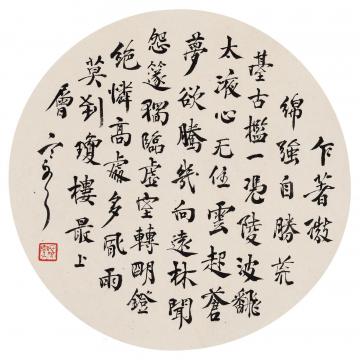 乍著微
綿強自勝荒
臺古檻一憑陵波飜
太液心无住雲起蒼
夢欲騰幾向遠林聞
怨篴獨臨虛空轉明鐙
絕憐高處多風雨
莫到瓊樓最上
層